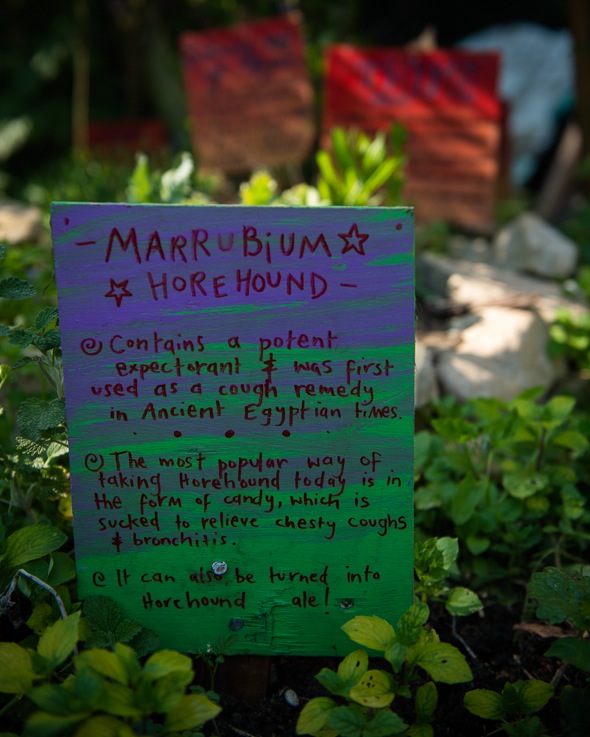 - MARRUBiUM ☆
☆ HOREHOUND -
Contains a potent
expectorant & was first
used as a cough remedy
in Ancient Egyptian times.
The most popular way of
taking Horehound today is in
the form of candy, which is
sucked to relieve chesty coughs
& bronchitis.
It can also be turned into
Horehound ale!